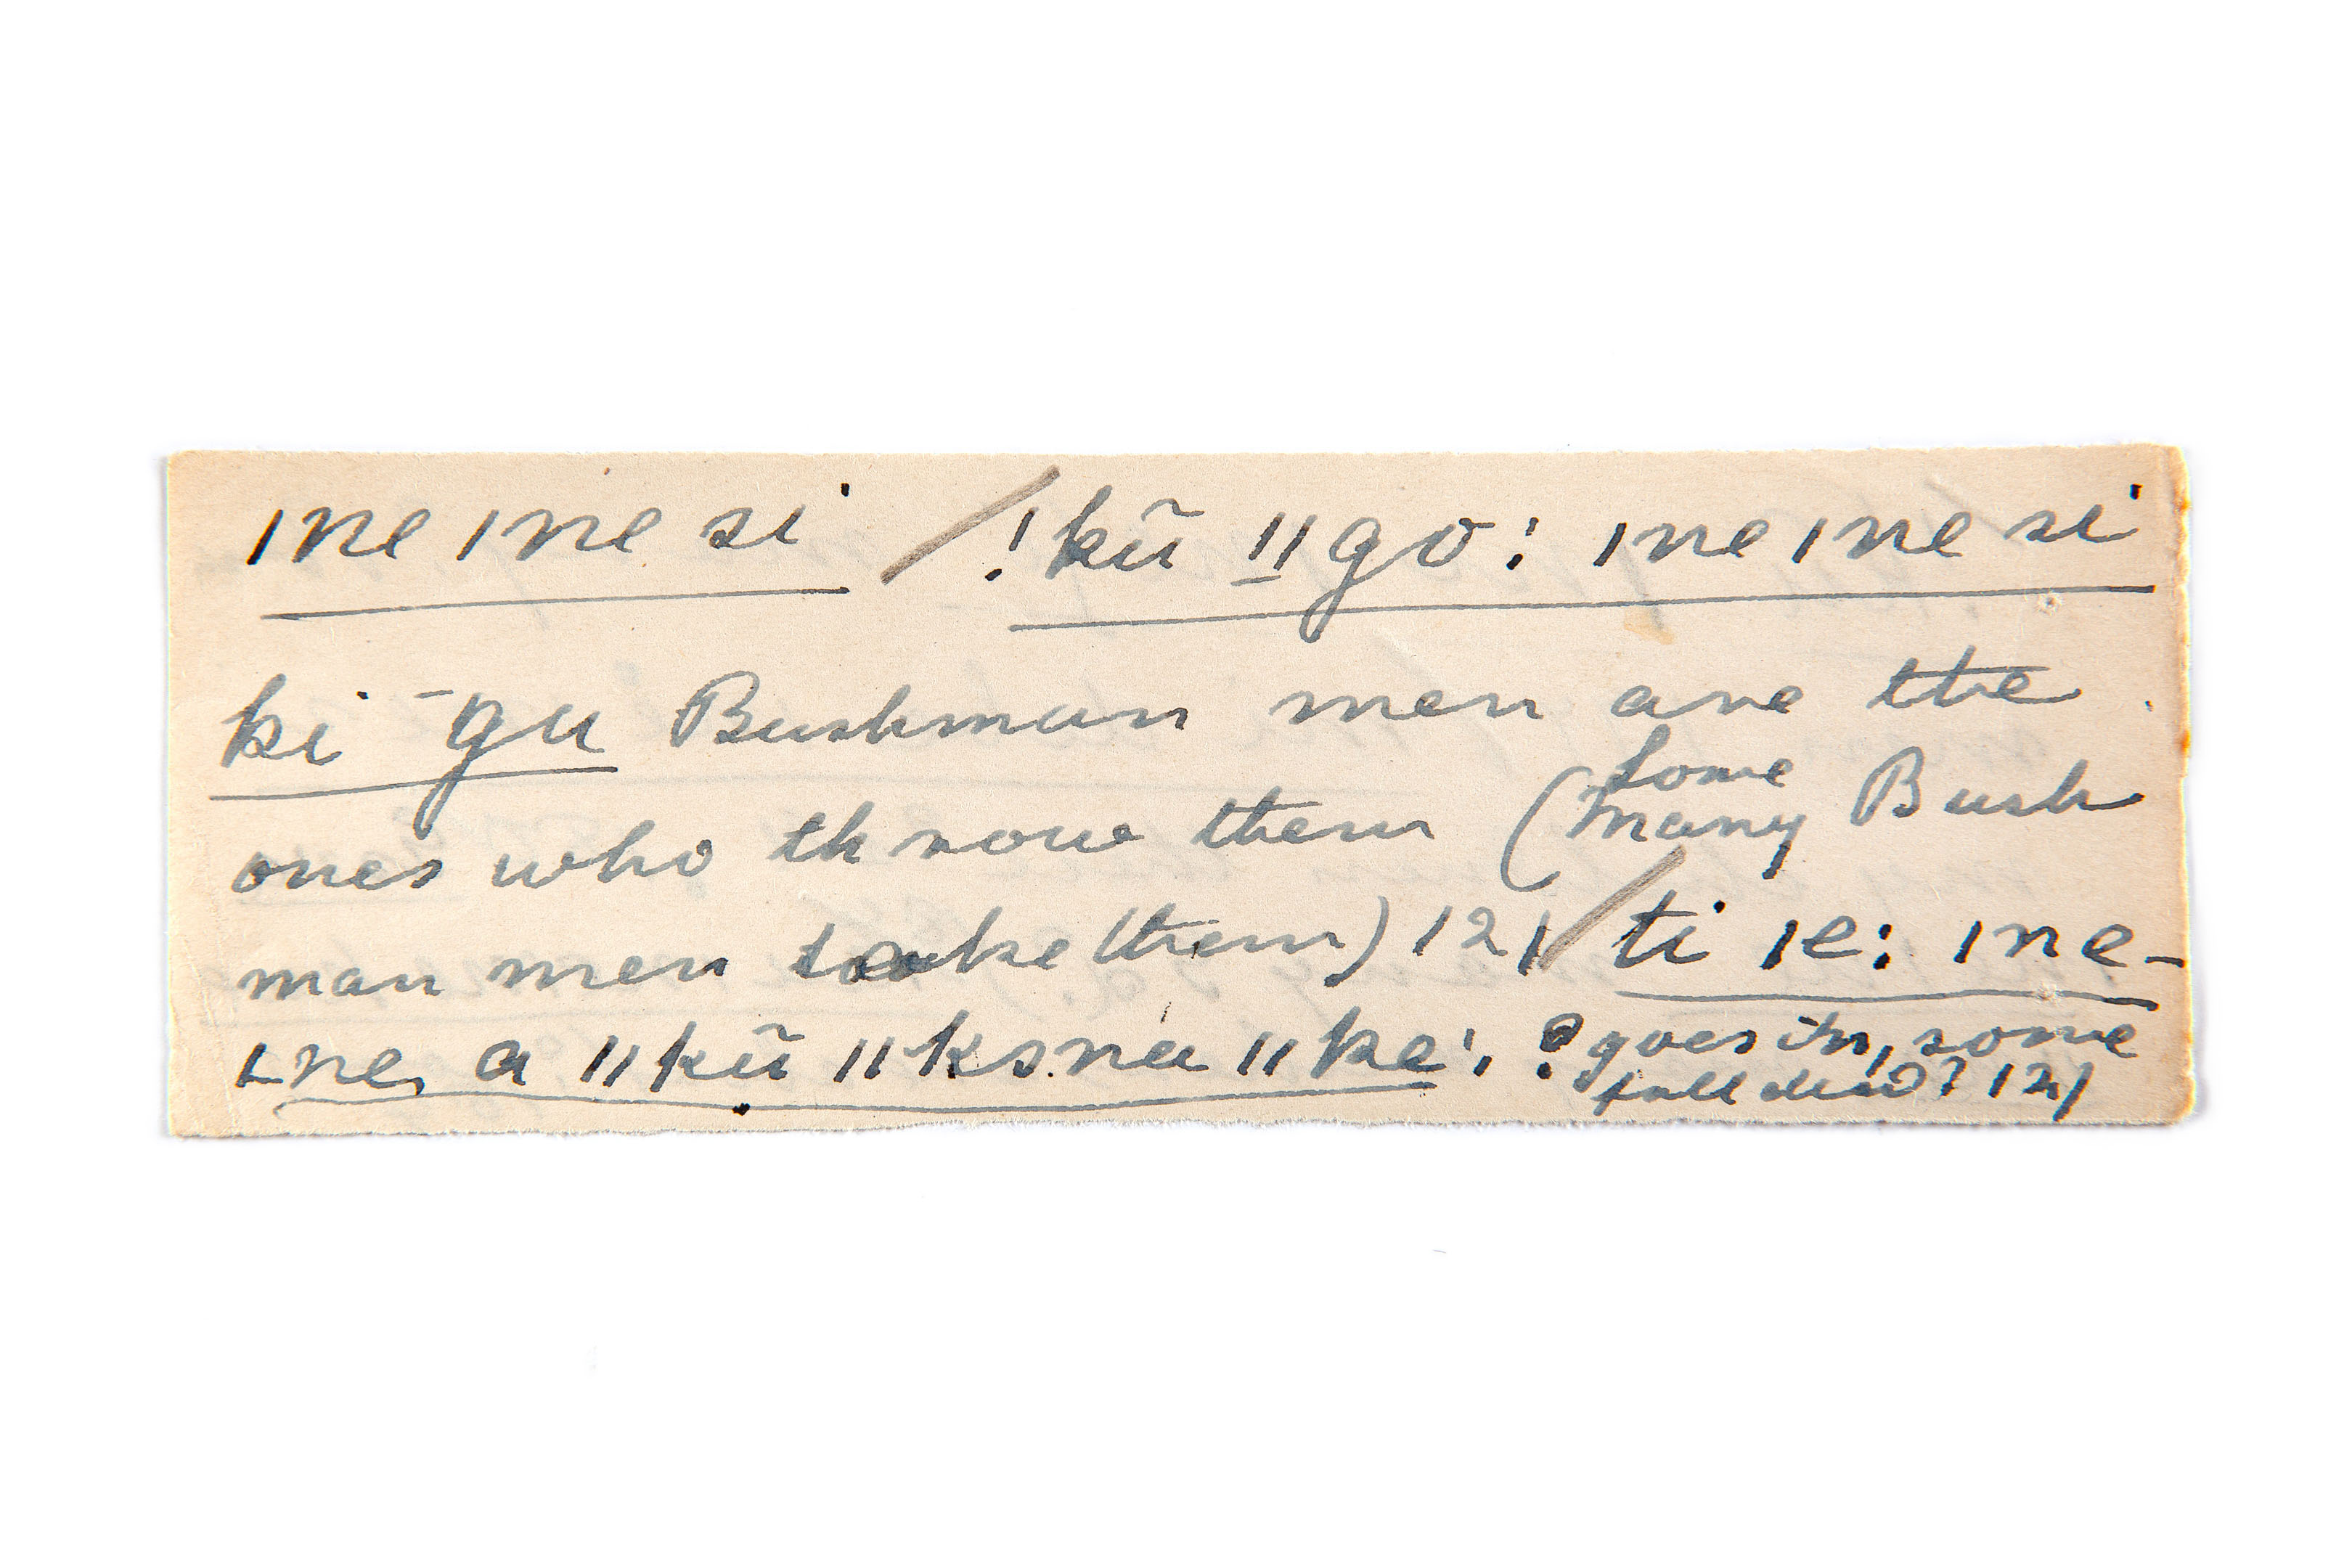 ǀne ǀne si / !kũ ǁgo: ǀne ǀne si
ki ̄gu Bushman men are the
ones who throw them (some many Bush
man men take them) 121 / ti ǀe: ǀne-
ǀne, a ǁkũ ǁksna ǁke: ? goes in, some
fall dead? 121